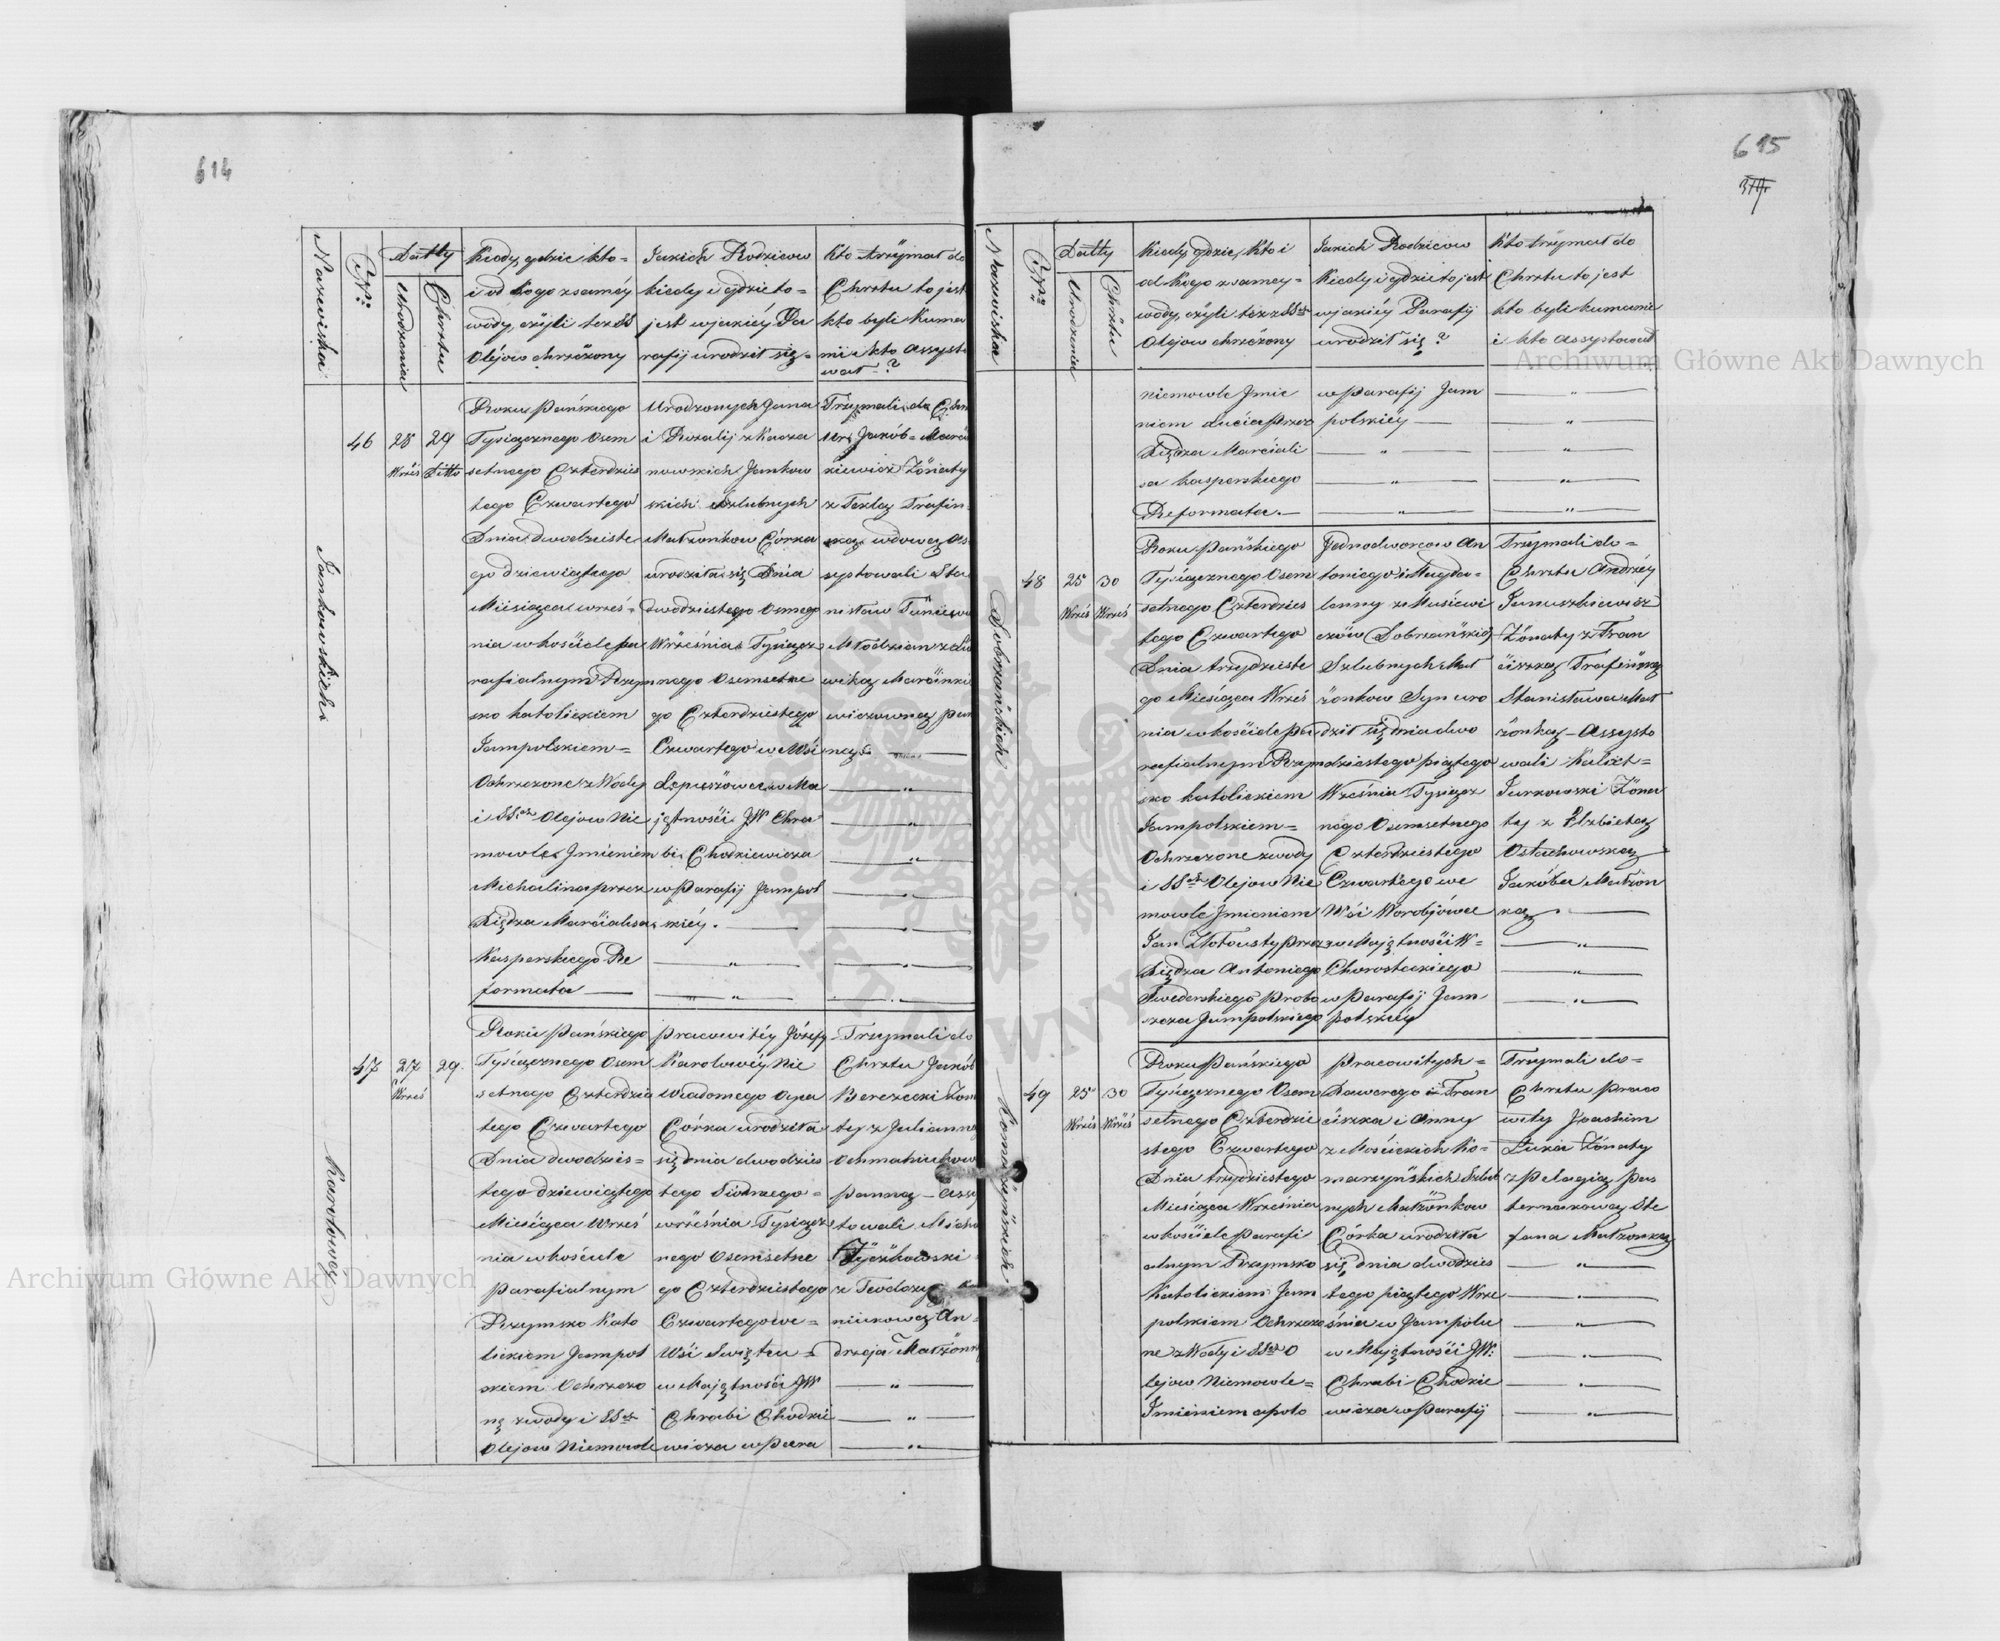 614
Nazwiska
Nr
Datty
Urodzenia
Chrztu
Kiedy, gdzie kto =
i od kogo z samey
wody, czyli też z SS
Olejów chrzczony
Jakich Rodziców
kiedy i gdzie to =
jest w jakiéy Pa
rafij urodził się =
Kto trzÿmał do
Chrztu to jest
kto byli Kuma
mi i kto Assysto
wał ?
Jankowskich
46
28
Wrześ
29
Ditto
Roku Pańskiego
Tysiącznego Osem
setnego Czterdzies
tego Czwartego
Dnia dwudzieste
go dziewiątego
Miesiąca wrześ =
nia w kościele pa
rafialnym Rzym
sko katolickiem
Jampolskiem =
Ochrzczone z Wody
i SSch Olejow Nie
mowle Jmieniem
Michalina przez
Xiędza Marcialisa
Kasperskiego Re
formata —
Urodzonych Jana
i Rozalij z Kacza
nowskich Jankow
skich Szlubnych
Małżonkow Córka
urodziła się Dnia
dwudziestego Osmego
Września Tysiącz
nego Osemsetne
go Czterdziestego
Czwartego w Wsi
Łepeszówce w Ma
jętności JW Chra
bi Chodkiewicza
w Parafij Jampol
skiéy .
Trzymali do Chrz
Jakób Marci
kiewicz Żonaty
z Teklą Trafin
ską wdową As
systowali Sta
nisław
Młodzian z Lud
wiką Marcinki
wiczowną pan
ną
47
27
Wrześ
29
Karolowey
Roku Pańskiego
Tysiącznego Osem
setnego Czterdzies
tego Czwartego
Dnia dwudzies =
tego dziewiątego
Miesiąca Wrześ
nia w kościele
parafialnym
Rzymsko Kato
lickiem Jampol
skiem Ochrzczo
ną z wody i SSch
Olejow Niemowle
Pracowitéy Józefy
Karolowéy Nie
wiadomego Oyca
Córka urodziła
się dnia dwudzies
tego Siódmego =
września Tysiącz
nego Osemsetne
go Czterdziestego
Czwartego we =
Wsi Swiętcu =
w Majętności JW
Chrabi Chodkie
wicza w Para
Trzymali do
Chrztu Jakób
Berezecki Żona
ty z Julianną
Panną — Assy
towali Micha
z Teodozyą
An =
drzeja Małżonk
615
Nazwiska
Nr
Datty
Urodzenia
Chrztu
Kiedy, gdzie, Kto i
od Kogo z samey =
wody, czyli też z SSch
Olejow chrzczony
Jakich Rodzicow
Kiedy i gdzie to jest
w jakiéy Parafij
urodził się ?
Kto trzÿmał do
Chrztu to jest
kto byli kumamie
i kto assystował
niemowle Jmie
niem Łucia Przez
Xiędza Marciali
sa Kasperskiego
Reformata. —
w Parafij Jam
polskiéy —
48
25
Wrześ
30
Wrześ
Dobrzańskich
Roku Pańskiego
Tysiącznego Osem
setnego Czterdzies
tego Czwartego
Dnia trzydzieste
go Miesiąca Wrześ
nia w kościele Pa
rafialnym Rzym
sko katolickiem
Jampolskiem =
Ochrzczone z wody
i SSch Olejow Nie
mowle Jmieniem
Jan Złotousty przez
Xiędza Antoniego
Twederskiego Probo
szcza Jampolskiego
Jednodworcow An
toniego i Magda =
lenny z Musiewi
czów Dobrzańskich
Szlubnych Mał
żonkow Syn uro
dził się dnia dwu
dziestego piątego
Września Tysiącz
nego Osemsetnego
Czterdziestego
Czwartego we
Wsi Worobjówce
w Majętności W =
Chorosteckiego
w Parafij Jam
polskiéy
Trzymali do =
Chrztu Andrzéy
Januszkiewicz
Żonaty z Fran
ciszką Trafinską
Stanisława Mał
żonką — Assysto
wali Kalixt =
Jurkowski Żona
ty z Elzbietą
Ostachowską
Jakóba Małżon
ką
49
25
Wrześ
30
Wrześ
Komarzyńskich
Roku Pańskiego
Tysiącznego Osem
setnego Czterdzie
stego Czwartego
Dnia trzydziestego
Miesiąca Września
w kościele Parafi
alnym Rzymsko
Katolickiem Jam
polskiem Ochrzczo
ne z Wody i SSch O
lejow Niemowle =
Imieniem Apolo
Pracowitych =
Xawerego Fran
ciszka i Anny
z Mościckich Ko =
marzyńskich Szlub
nych Małżonkow
Córka urodziła
się dnia dwudzies
tego piątego Wrze
śnia w Jampolu
w Majętności JW:
Chrabi Chodkie
wicza w Parafij
Trzymali do =
Chrztu Praco
wity Joachim
Łuka Żonaty
z Pelagią Pas
ternakową Ste
fana Małżonką
Archiwum Główne Akt Dawnych
Archiwum Główne Akt Dawnych